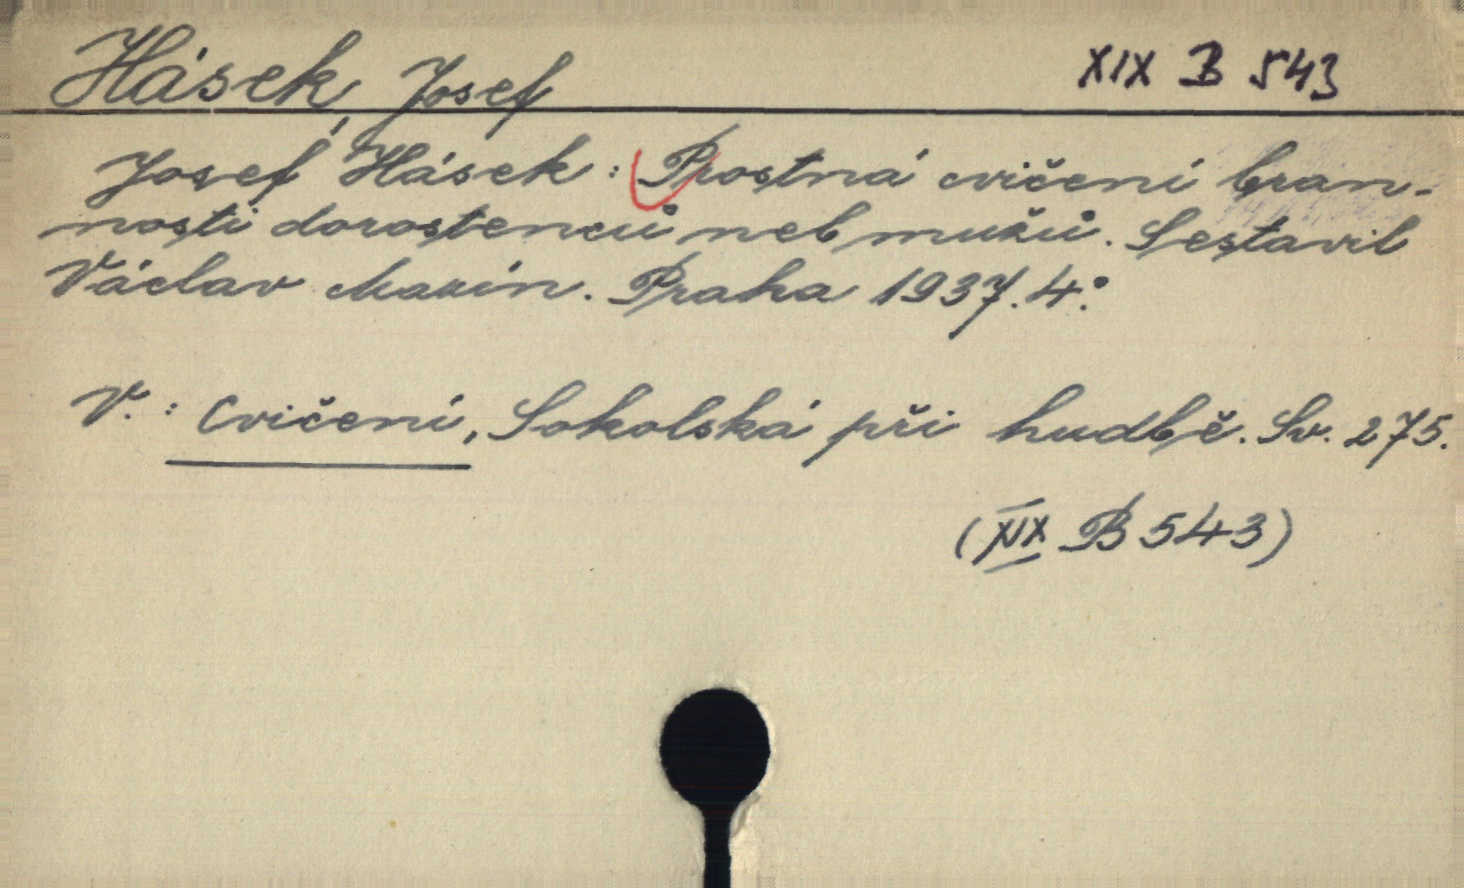 Hásek, Josef
XIX B 543
Josef Hásek: Prostná cvičení bran-
nosti dorostenců neb mužů. Sestavil
Václav Mazín. Praha 1937. 4.°
V.: Cvičení, Sokolská při hudbě. Sv. 275.
(XIX B 543)